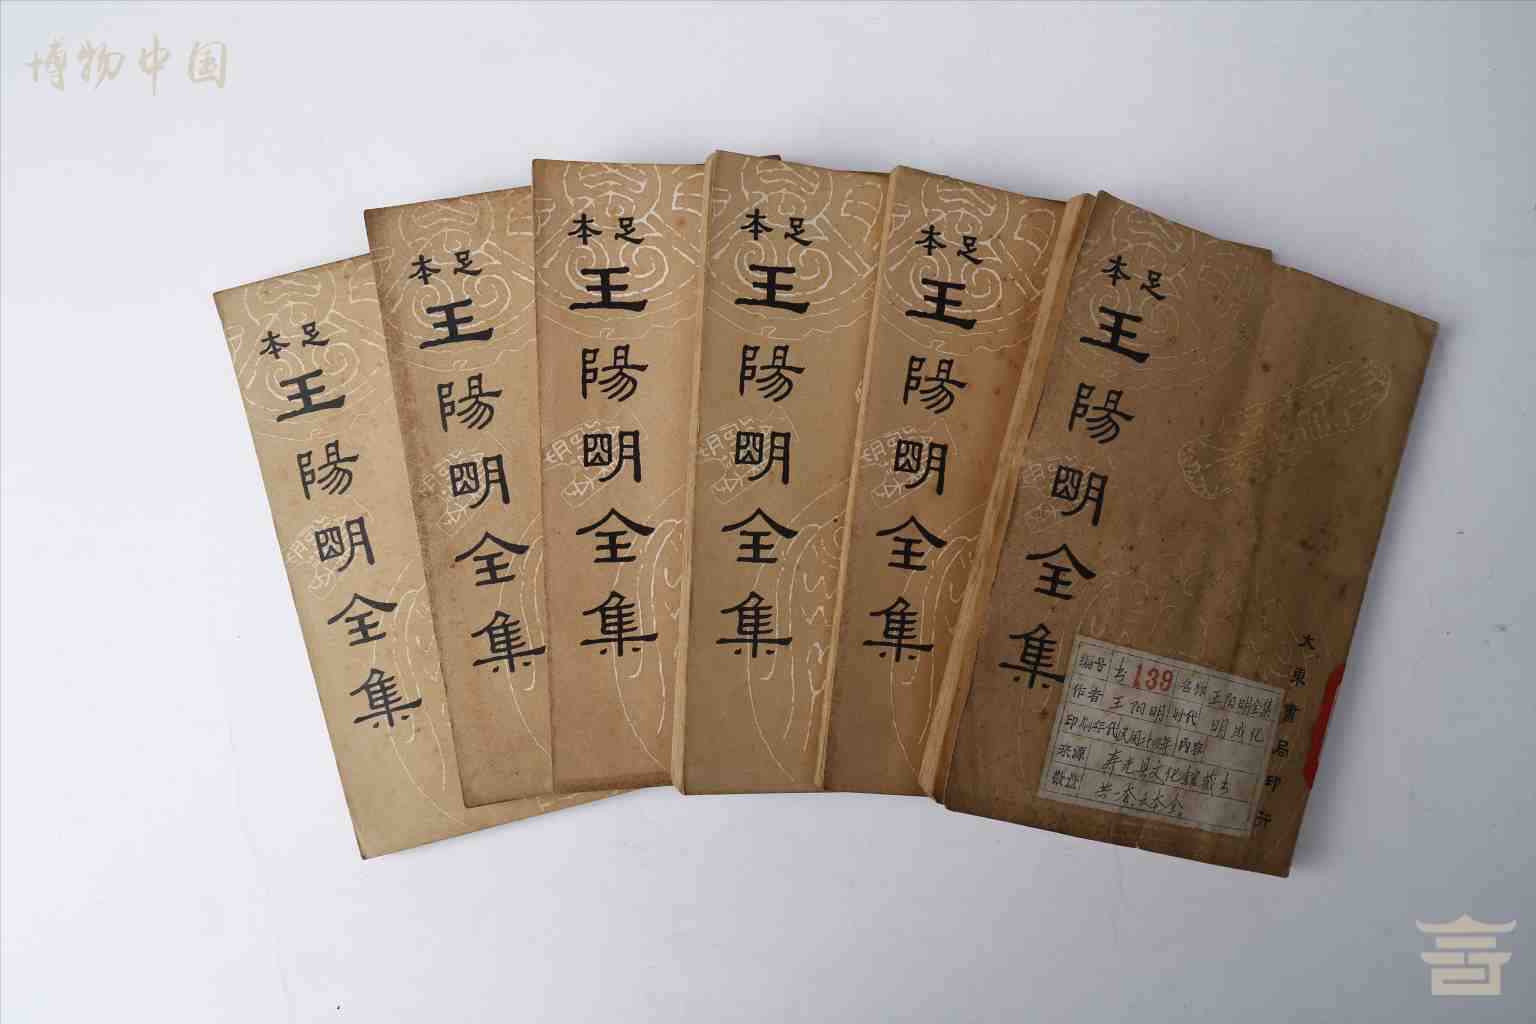 博物中国
足本
王陽明全集
足本
王陽明全集
足本
王陽明全集
足本
王陽明全集
足本
王陽明全集
足本
王陽明全集
大東書局印行
编号 古139 名称 王阳明全集
作者 王阳明 时代 明成化
印刷年代 民国廿四年 内容
来源 寿光县文化馆藏书
数量 共一套六本全。